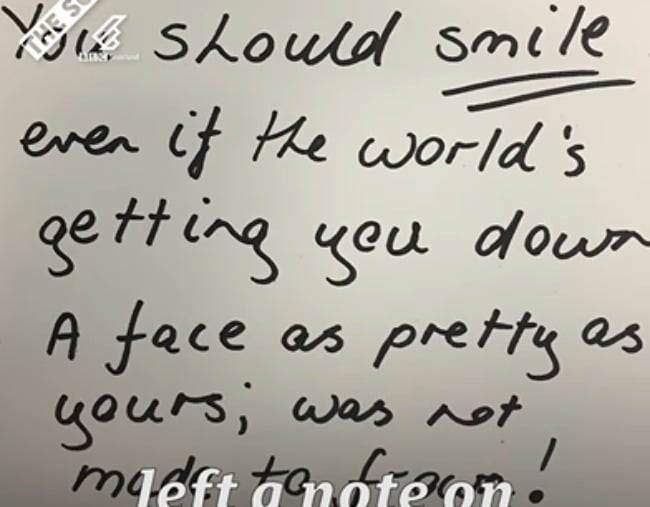 You should smile
even if the world's
getting you down
A face as pretty as
yours; was not
made to frown!
left a note on